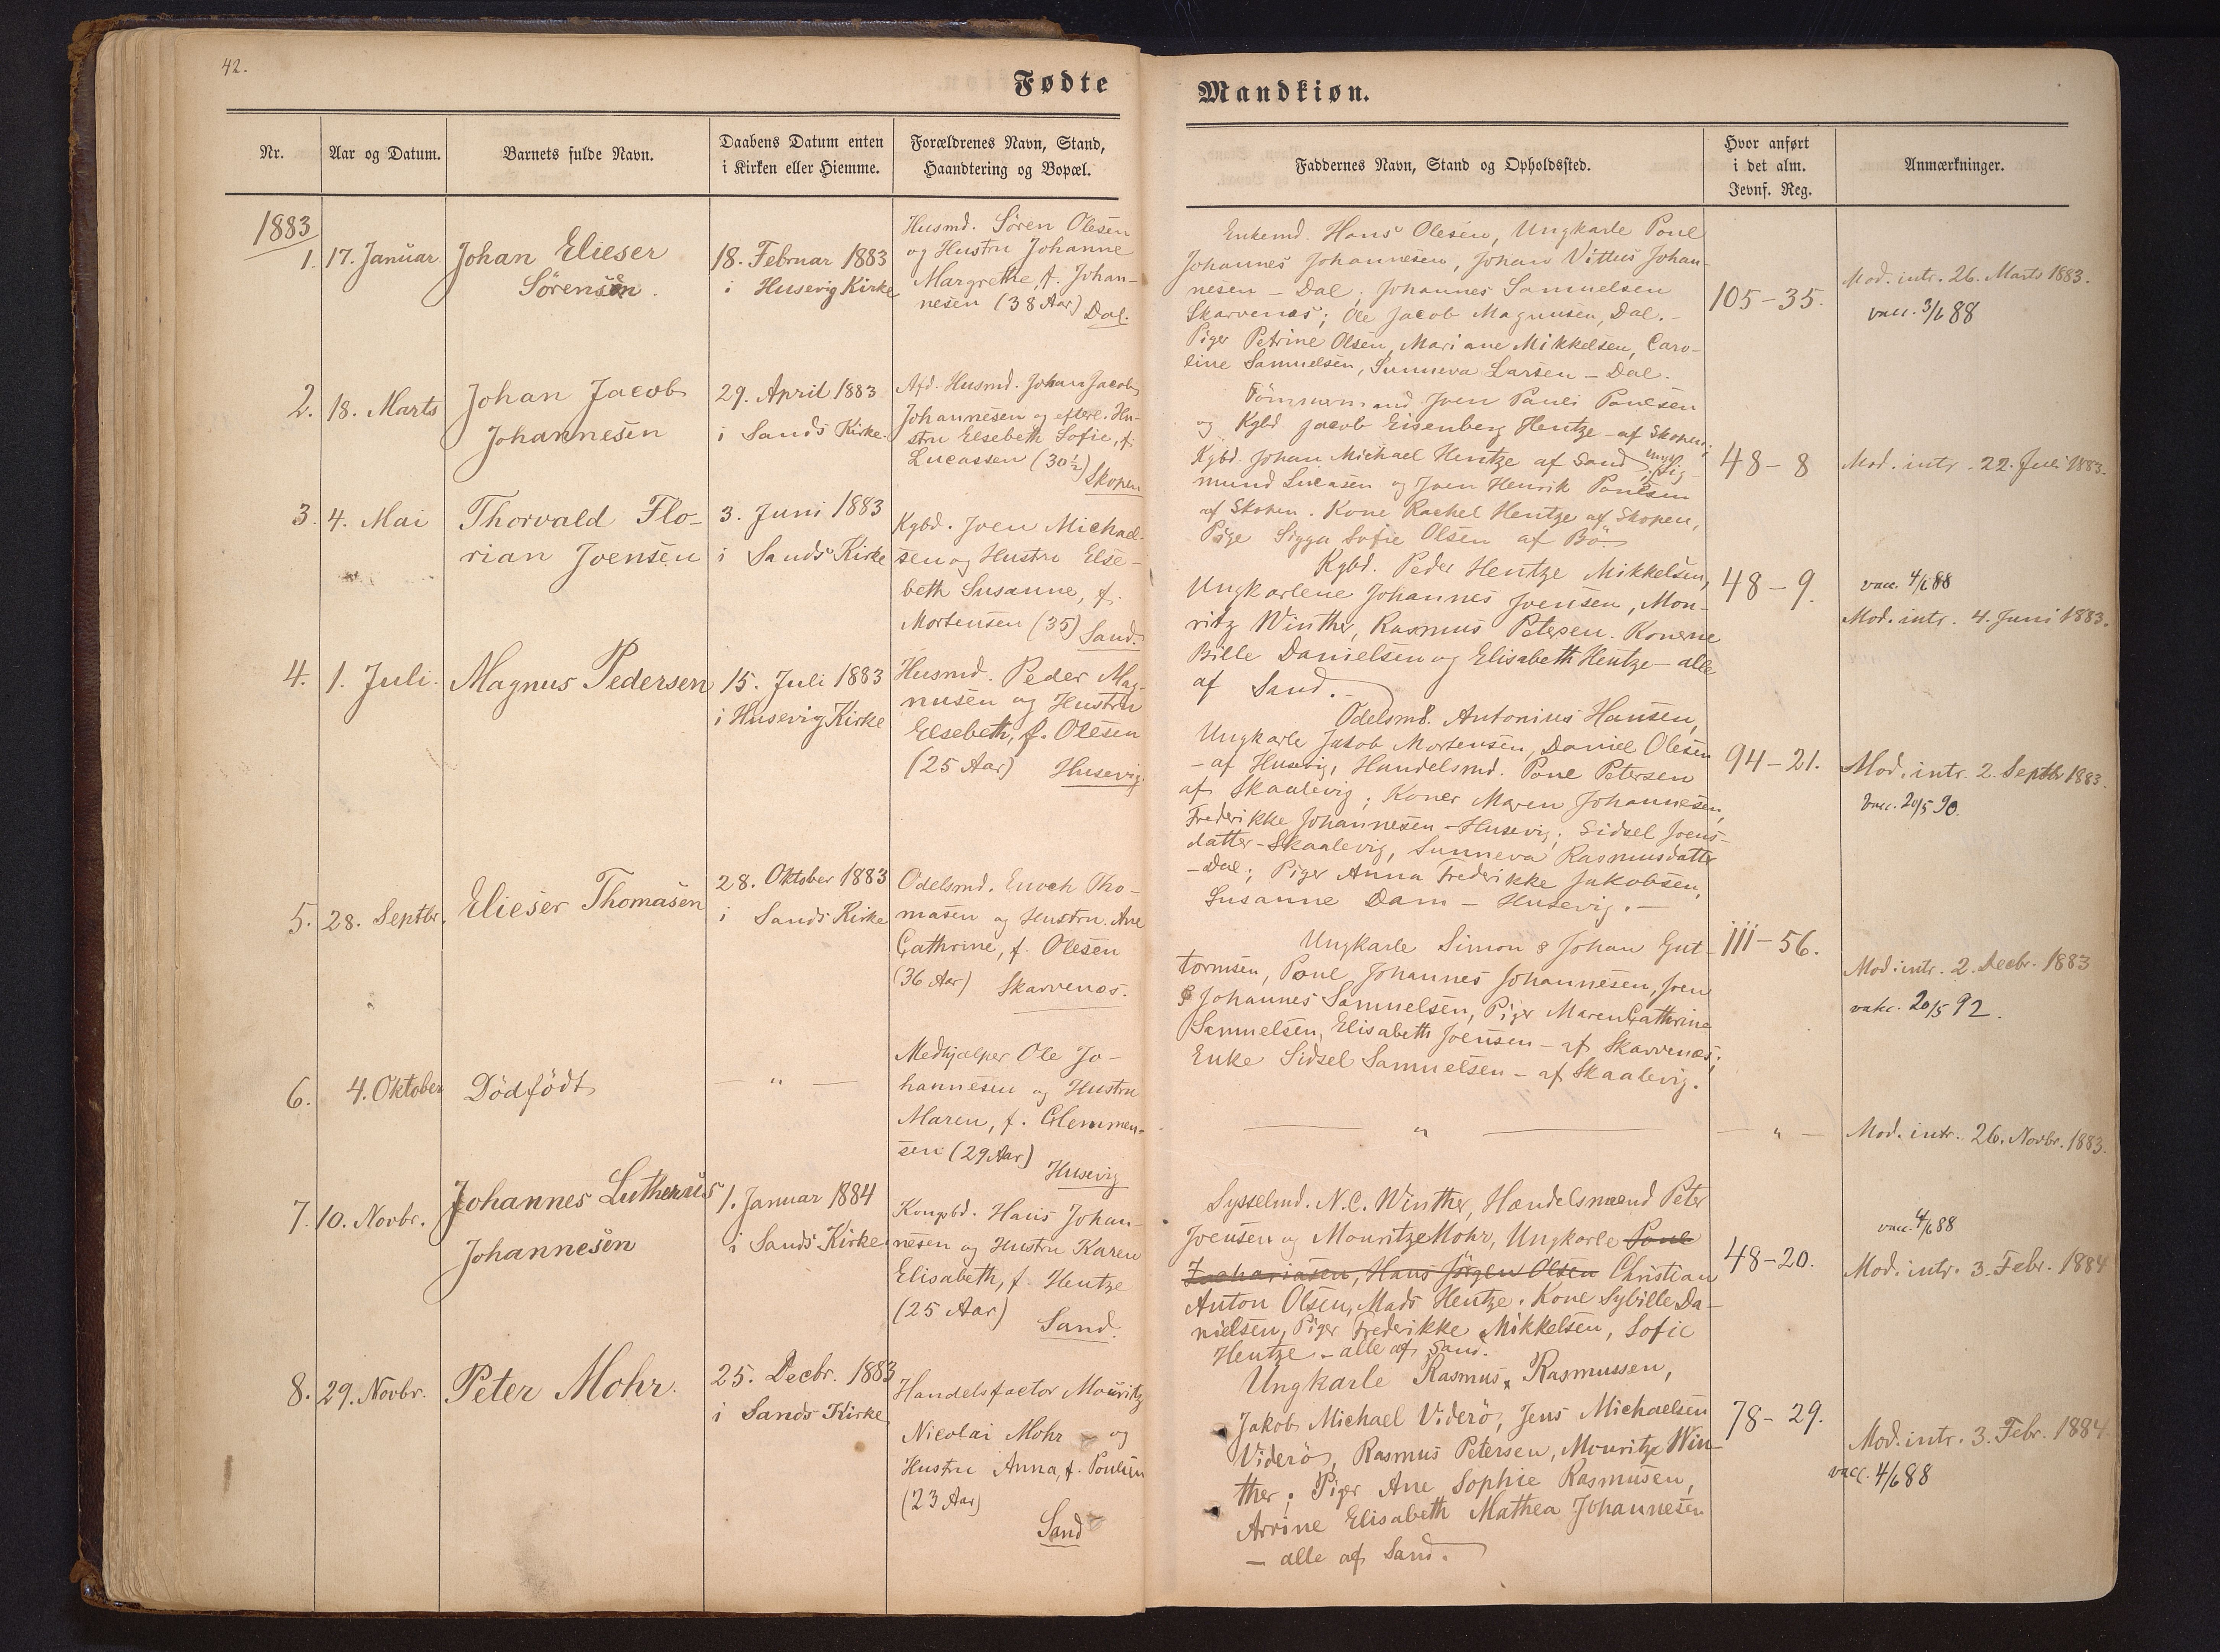 42.
Fødte
Mandkiøn.
Nr.
Aar og Datum.
Barnets fulde Navn.
Daabens Datum enten
i Kirken eller Hiemme.
Forældrenes Navn, Stand,
Haandtering og Bopæl.
Faddernes Navn, Stand og Opholdssted.
Hvor anført
i det alm.
Jevnf. Reg.
Anmærkninger.
1883
1. 17. Januar
Johan Elieser
Sörensen.
18. Februar 1883
i Husevig Kirke
Husmd. Sören Olesen
og Hustru Johanne
Margrethe, f. Johan-
nesen (38 Aar) Dal.
Enkemd. Hans Olesen, Ungkarle Poul
Johannes Johannesen, Johan Vittus Johan-
nesen - Dal; Johannes Samuelsen
Skarvenæs; Ole Jacob Magnusen, Dal. -
Piger Petrine Olsen, Mariane Mikkelsen, Caro-
line Samuelsen, Sunneva Larsen - Dal.
105-35.
Mod. intr. 26. Marts 1883.
vacc. 3/6 88
2. 18. Marts
Johan Jacob
Johannesen
29. April 1883
i Sands Kirke.
Afd. Husmd. Johan Jacob
Johannesen og efterl. Hu-
stru Elsebeth Sofie, f.
Lucassen (30½) Skopen
Tömmermand Joen Pauli Poulsen
og Kgbd Jacob Eisenberg Hentze - af Skopen;
Kgbd. Johan Michael Hentze af Sand, Ungk. Sig-
mund Lucasen og Joen Henrik Poulsen
af Skopen. Kone Rachel Hentze af Skopen,
Pige Sigga Sofie Olsen af Bö.
48-8
Mod. intr. 22. Juli 1883.
3. 4. Mai
Thorvald Flo-
rian Joensen
3. Juni 1883
i Sands Kirke
Kgbd. Joen Michael-
sen og Hustru Else-
beth Susanne, f.
Mortensen (35) Sand.
Kgbd. Peder Hentze Mikkelsen,
Ungkarlene Johannes Joensen, Mou-
ritz Winther, Rasmus Petersen. Konerne
Bille Danielsen og Elisabeth Hentze - alle
af Sand. -
48-9.
vacc. 4/6 88
Mod. intr. 4. Juni 1883.
4. 1. Juli.
Magnus Pedersen
15. Juli 1883
i Husevig Kirke
Husmd. Peder Mag-
nusen og Hustru
Elsebeth, f. Olesen
(25 Aar) Husevig.
Odelsmd. Antonius Hansen,
Ungkarle Jakob Mortensen, Daniel Olesen
- af Husevig, Handelsmd. Poul Petersen
af Skaalevig; Koner Maren Johannesen,
Frederikke Johannesen - Husevig; Sidsel Joens-
datter - Skaalevig, Sunneva Rasmusdatter
- Dal; Piger Anna Frederikke Jakobsen,
Susanne Dam - Husevig. -
94-21.
Mod. intr. 2. Septbr 1883.
vacc. 20/5 90.
5. 28. Septbr.
Elieser Thomasen
28. Oktober 1883
i Sands Kirke
Odelsmd. Enoch Tho-
masen og Hustru Ane
Cathrine, f. Olesen
(36 Aar) Skarvenæs.
Ungkarle Simon & Johan Gut-
tormsen, Poul Johannes Johannesen, Joen
& Johannes Samuelsen, Piger Maren Cathrine
Samuelsen, Elisabeth Joensen - af Skarvenæs;
Enke Sidsel Samuelsen - af Skaalevig.
111-56.
Mod. intr. 2. Decbr. 1883
vakc. 20/5 92.
6. 4. Oktober
Dödfödt
— " —
Medhjælper Ole Jo-
hannesen og Hustru
Maren, f. Clemmen-
sen (29 Aar) Husevig
— " —
— " —
Mod. intr. 26. Novbr. 1883.
7. 10. Novbr.
Johannes Lutherus
Johannesen
1. Januar 1884
i Sands Kirke
Kongsbd. Hans Johan-
nesen og Hustru Karen
Elisabeth, f. Hentze
(25 Aar) Sand.
Sysselmd. N.C. Winther, Handelsmænd Peter
Joensen og Mouritze Mohr, Ungkarle Poul
Zachariasen, Hans Jörgen Olsen Christian
Anton Olsen, Mads Hentze. Kone Sybille Da-
nielsen, Piger Frederikke Mikkelsen, Sofie
Hentze - alle af Sand.
48-20.
vacc. 4/6 88
Mod. intr. 3. Febr. 1884
8. 29. Novbr.
Peter Mohr.
25. Decbr. 1883
i Sands Kirke
Handelsfactor Mouritz
Nicolai Mohr - og
Hustru Anna, f. Poulsen
(23 Aar)
Sand
Ungkarle Rasmus Rasmussen,
Jakob Michael Viderö, Jens Michaelsen
Viderö, Rasmus Petersen, Mouritze Win-
ther; Piger Ane Sophie Rasmusen,
Arrine Elisabeth Mathea Johannesen
- alle af Sand.
78-29.
Mod. intr. 3. Febr. 1884.
vacc. 4/6 88